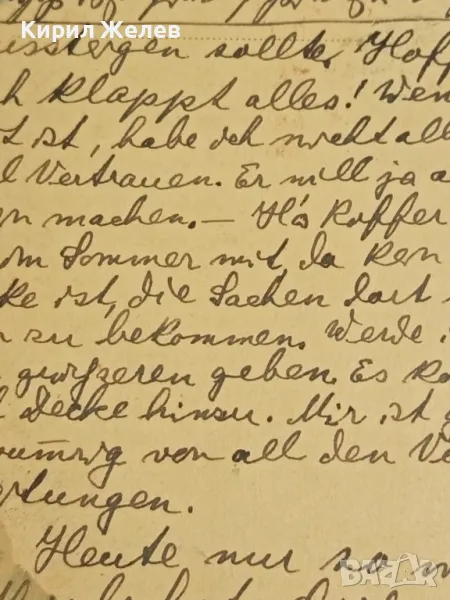 Кирил Желев
ussteigen sollte, Hoff
ch klappt alles! Wen
t ist, habe ich nicht all
l Vertrauen. Er will ja a
en machen. — H's Koffer
om Sommer mit, da kein
ke ist, die Sachen dort
n zu bekommen. Werde i
geben. Es ko
Decke hinzu. Mir ist g
von all den Vo
eitungen.
Heute nur so
BAZAR.BG